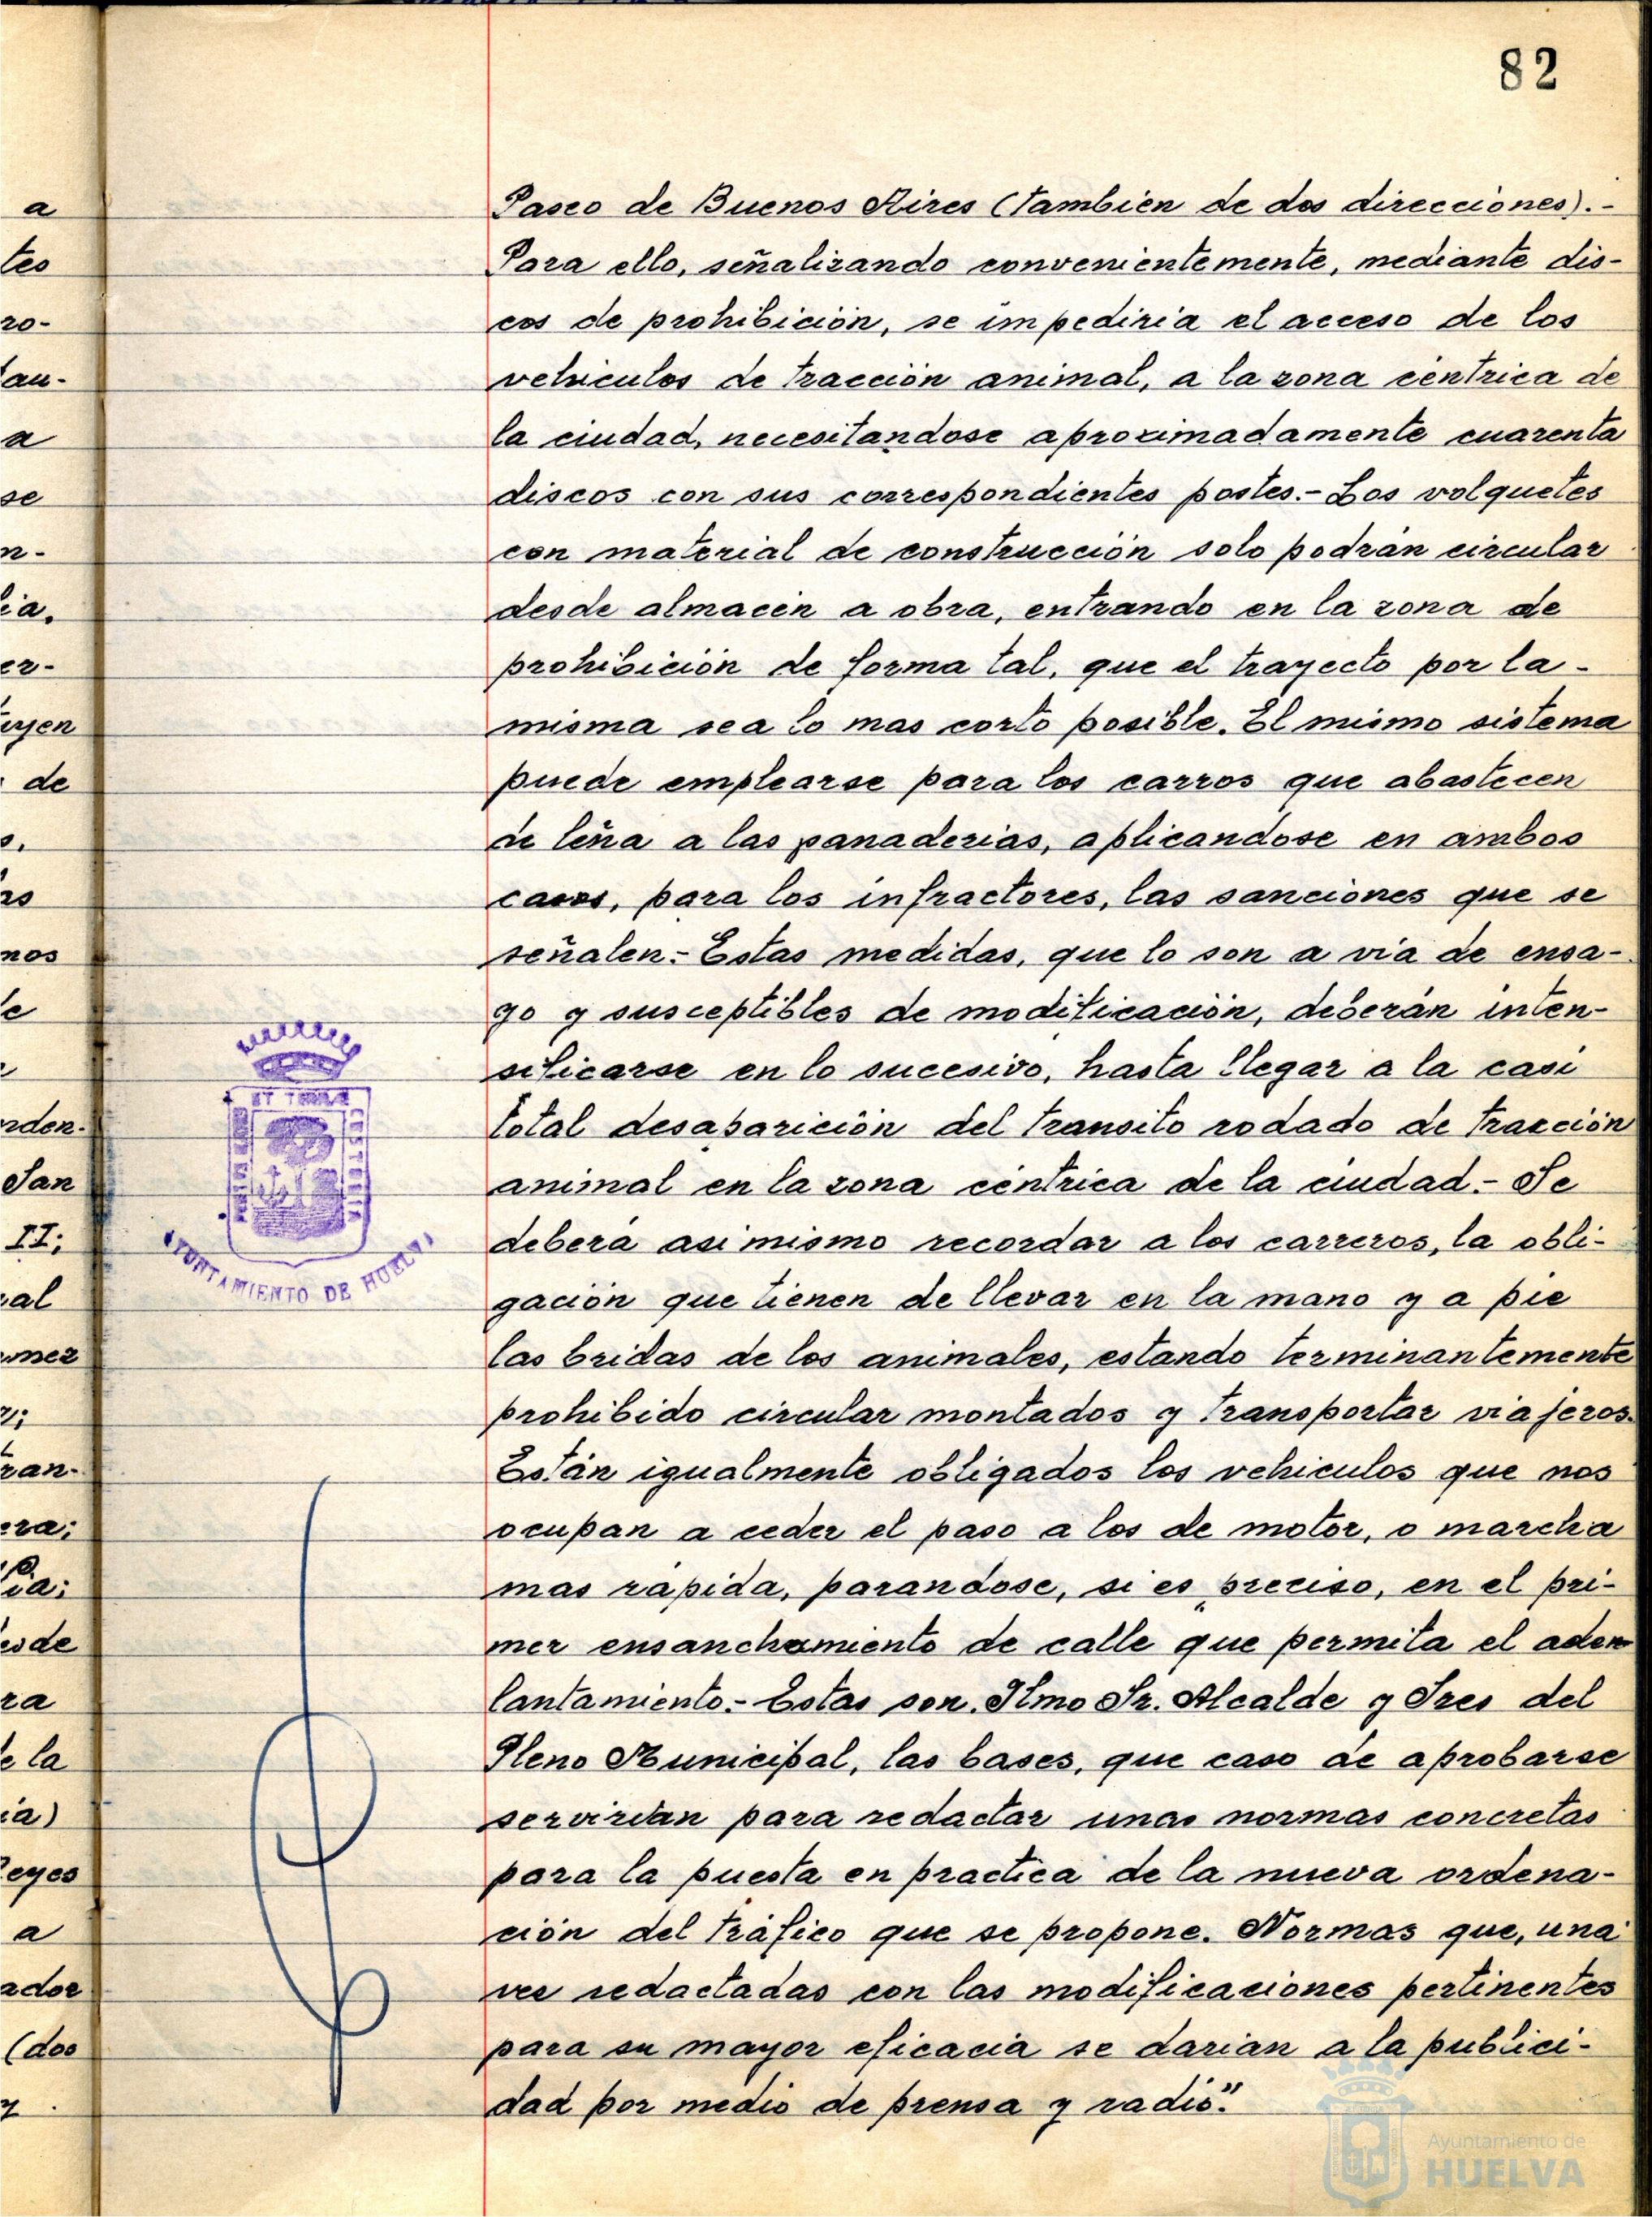 82
Paseo de Buenos Aires (tambien de dos direcciones).-
Para ello, señalizando convenientemente, mediante dis-
cos de prohibición, se impediria el acceso de los
vehiculos de tracción animal, a la zona céntrica de
la ciudad, necesitandose aproximadamente cuarenta
discos con sus correspondientes postes.- Los volquetes
con material de construcción solo podrán circular
desde almacén a obra, entrando en la zona de
prohibición de forma tal, que el trayecto por la-
misma sea lo mas corto posible. El mismo sistema
puede emplearse para los carros que abastecen
de leña a las panaderias, aplicandose en ambos
casos, para los infractores, las sanciones que se
señalen.- Estas medidas, que lo son a via de ensa-
yo y susceptibles de modificación, deberán inten-
sificarse en lo sucesivo, hasta llegar a la casi
total desaparición del transito rodado de tracción
animal en la zona céntrica de la ciudad.- Se
deberá asimismo recordar a los carreros, la obli-
gación que tienen de llevar en la mano y a pie
las bridas de los animales, estando terminantemente
prohibido circular montados y transportar viajeros.
Están igualmente obligados los vehiculos que nos
ocupan a ceder el paso a los de motor, o marcha
mas rápida, parandose, si es preciso, en el pri-
mer ensanchamiento de calle que permita el ade-
lantamiento.- Estas son, Iltmo Sr. Alcalde y Sres del
Pleno Municipal, las bases, que caso de aprobarse
servirian para redactar unas normas concretas
para la puesta en practica de la nueva ordena-
ción del tráfico que se propone. Normas que, una
vez redactadas con las modificaciones pertinentes
para su mayor eficacia se darian a la publici-
dad por medio de prensa y radio."
a
teo
ro-
au-
a
se
n-
ia.
er-
uyen
de
o.
ro
nos
le
rden-
San
II;
ral
mez
ran-
era;
ia;
esde
ra
e la
ia)
eyes
a
ador
(dos
y
AYUNTAMIENTO DE HUELVA
Ayuntamiento de
HUELVA